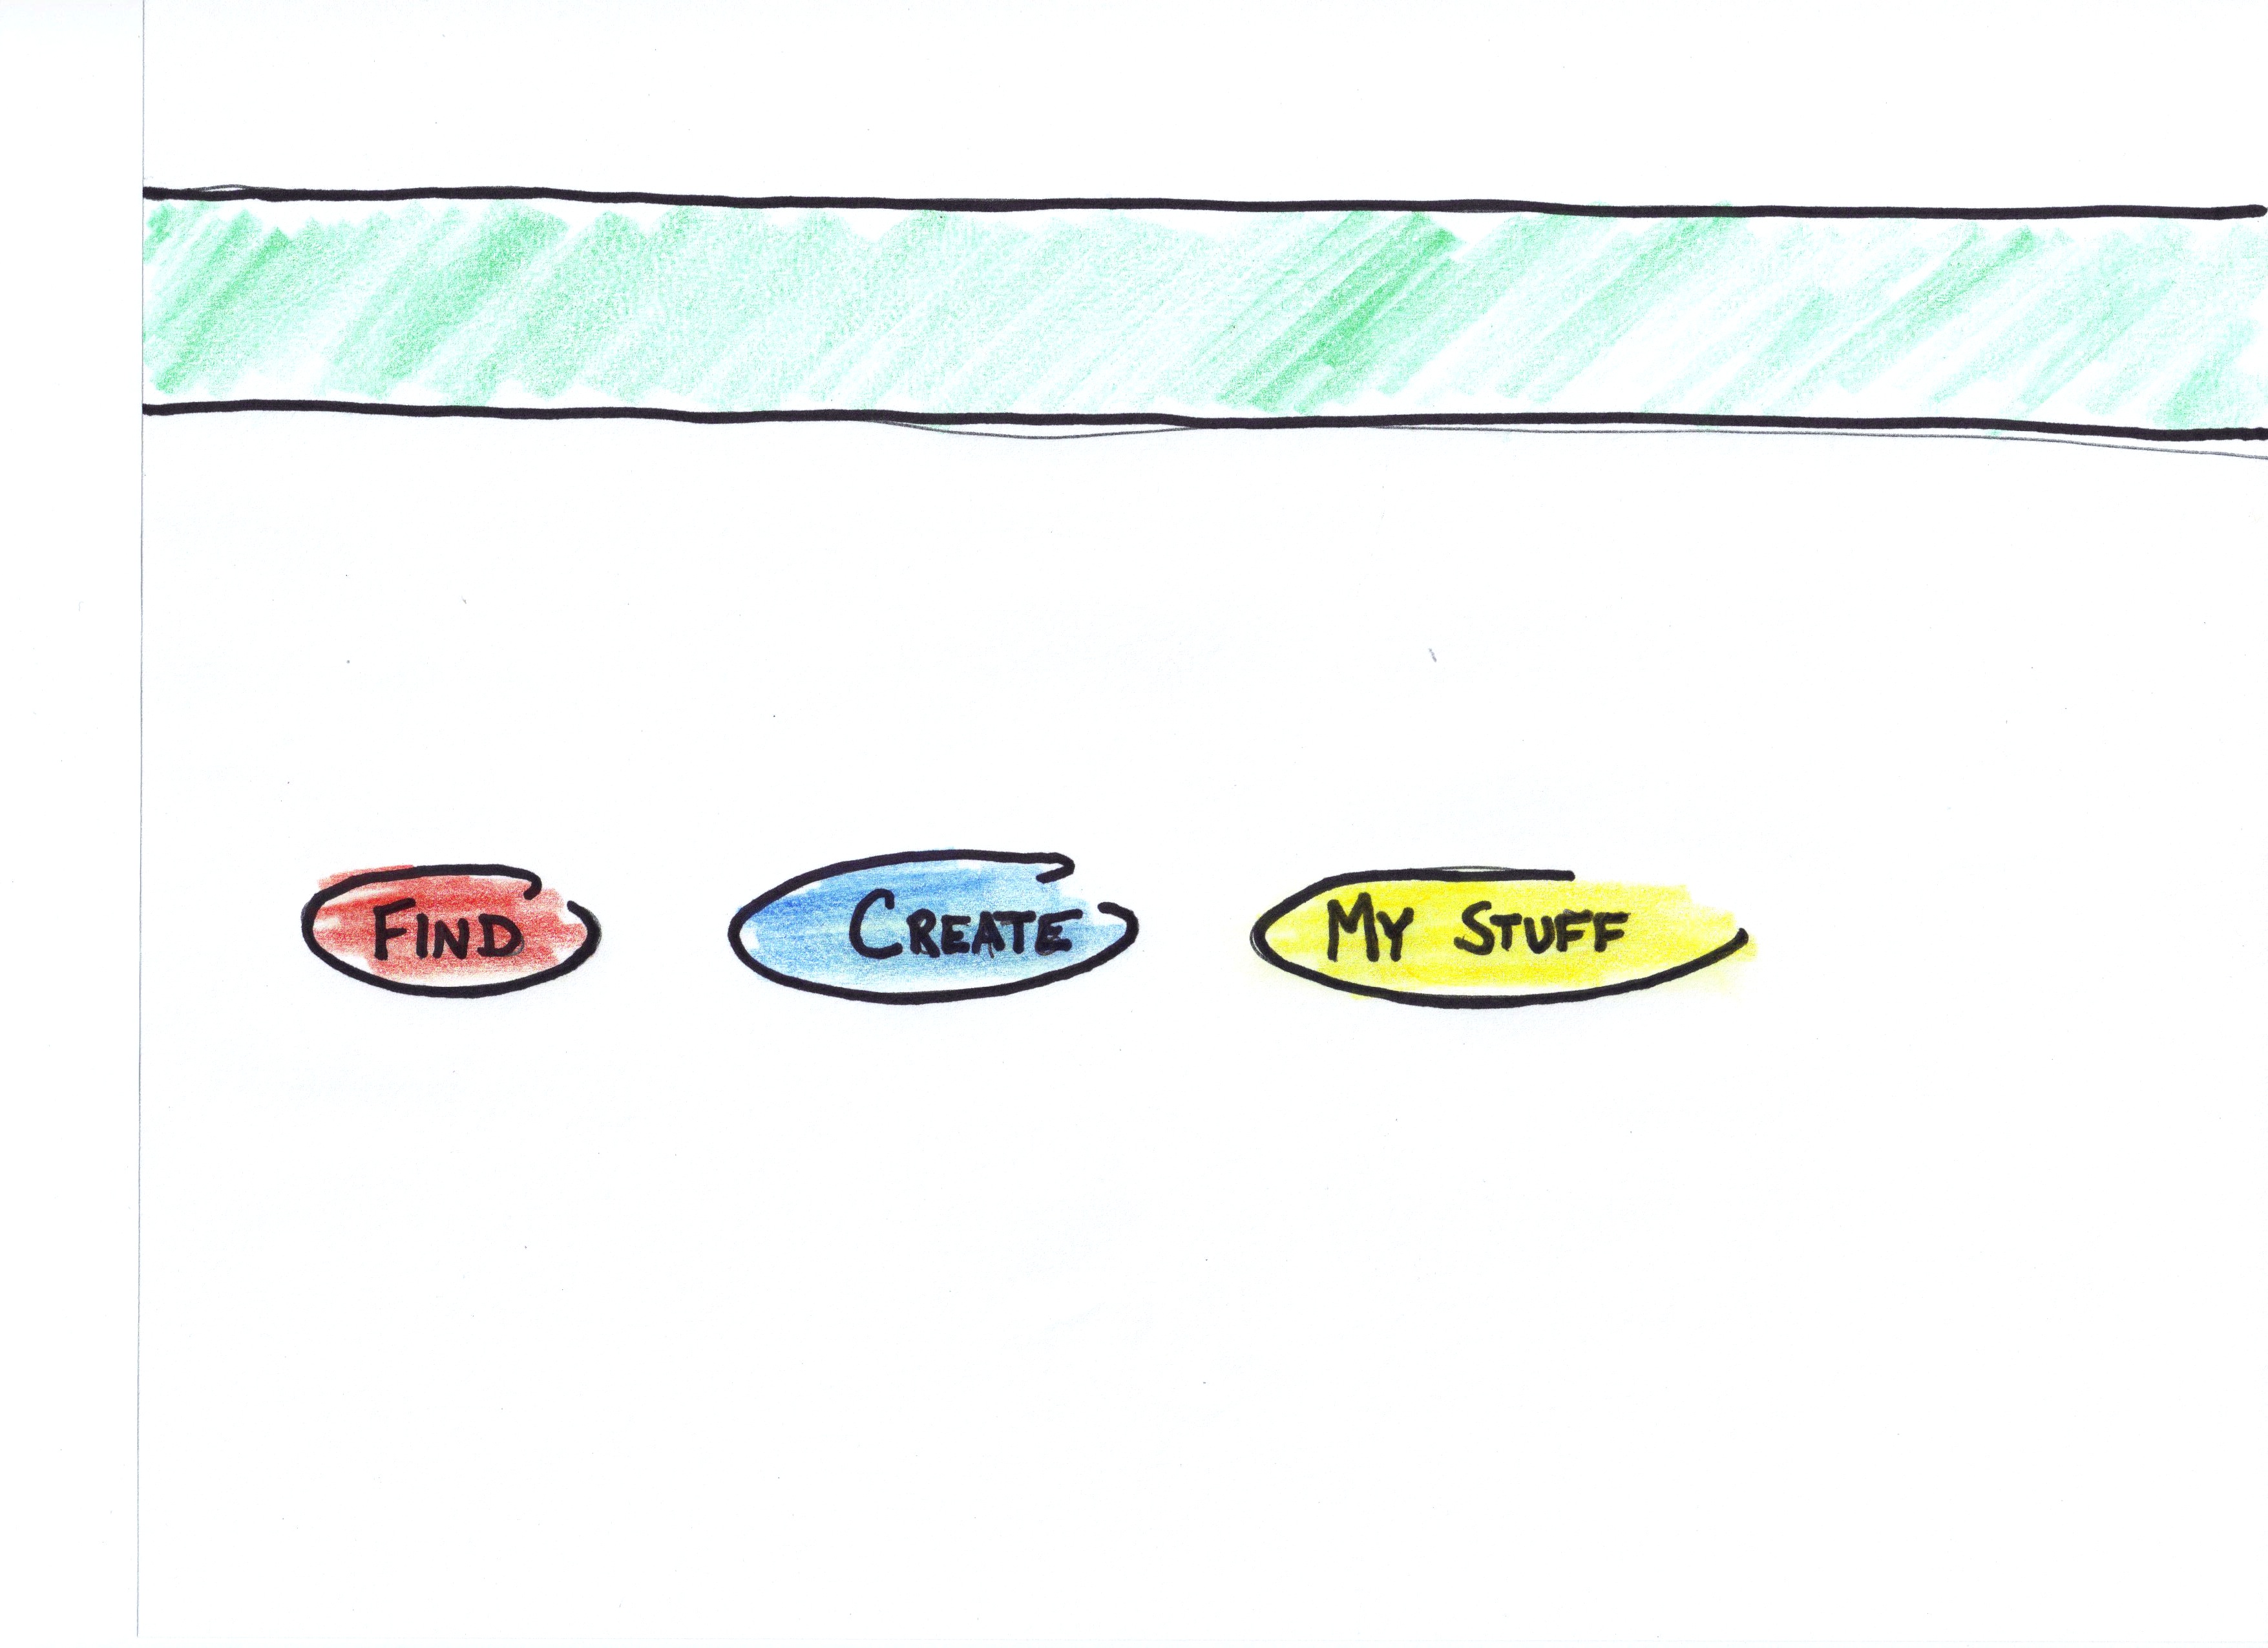 FIND CREATE MY STUFF